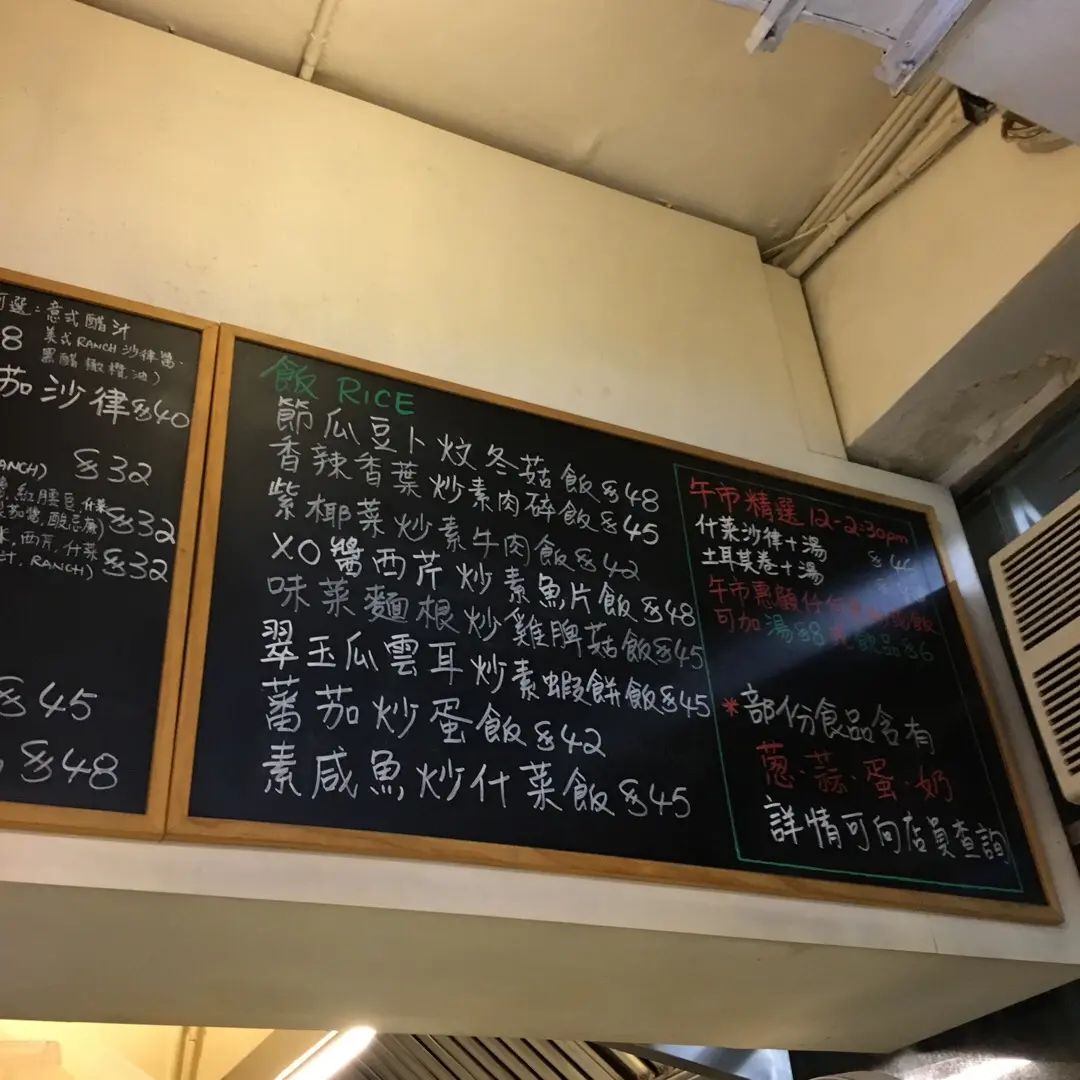 選：意式醋汁
8 美式RANCH沙律醬、
黑醋橄欖油）
茄沙律$40
RANCH) $32
$32
西芹，什菜
汁，RANCH) $32
$45
$48
飯 RICE
節瓜豆卜炆冬菇飯$48
香辣香葉炒素肉碎飯$45
紫椰菜炒素牛肉飯$42
XO醬西芹炒素魚片飯$48
味菜麵根炒雞脾菇飯$45
翠玉瓜雲耳炒素蝦餅飯$45
蕃茄炒蛋飯$42
素咸魚炒什菜飯$45
午市精選 12-2:30pm
什菜沙律+湯
土耳其卷+湯
午市惠顧任何
可加湯$8 飲品$6
*部份食品含有
蔥·蒜·蛋·奶
詳情可向店員查詢